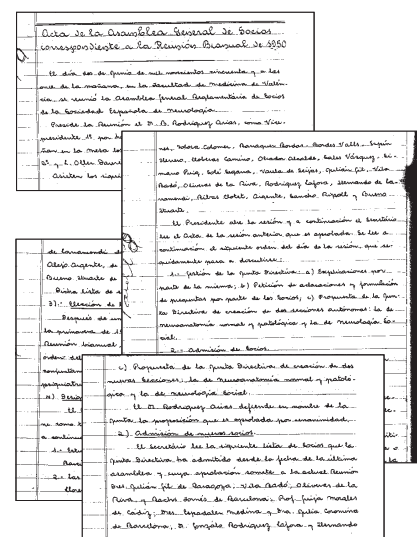 Acta de la Asamblea General de Socios
correspondiente a la Reunión Bianual de 1950
El día dos de Junio de mil novecientos cincuenta y a las
once de la mañana, en la Facultad de Medicina de Valen-
cia, se reunió la Asamblea General Reglamentaria de Socios
de la Sociedad Española de Neurología.
Preside la Reunión el D. B. Rodriguez Arias, como Vice-
presidente 1º, por
ñan en la mesa los
2º, y L. Oller
Asisten los siguient
nes, Tolosa Colomer, Barraquer Bordas, Bordes Valls,
Cloberas Camino, Obrador Alcalde, Sales Vázquez,
Puig, Solé Segarra, Vauela de Seijas, Julián Gil, Vila
Badó, Oliveras de la Riva, Rodriguez Lafora, Hernando de La-
rramendi, Ribas Clotet, Argente, Sancho Ripoll y Bueno
Ituarte.
El Presidente abre la sesión y a continuación el Secretario
lee el Acta de la sesión anterior que es aprobada. Se lee a
continuación el siguiente orden del día de la sesión, que se-
guidamente pasa a discutirse:
1.- Gestión de la Junta Directiva: a) Explicaciones por
parte de la misma; b) Petición de aclaraciones y formulación
de preguntas por parte de los Socios; c) Propuesta de la Jun-
ta Directiva de creación de dos secciones autónomas: la de
neuroanatomía normal y patológica y la de neurología so-
cial.
2.- Admisión de Socios.
de Larramendi
Alejo Argente,
Bueno Ituarte de
Dicha lista de
3).- Elección de
Después de
la primavera de
Reunión bianual
orden del
conjuntam
psiquiatr
4)
El
a continu
1.-
2.- Las
c) Propuesta de la Junta Directiva de creación de dos
nuevas Secciones: la de neuroanatomía normal y patoló-
gica y la de neurología Social.
El D. Rodriguez Arias, defiende en nombre de la
Junta la proposición que es aprobada por unanimidad.
2) Admisión de nuevos socios.
El Secretario lee la siguiente lista de Socios que la
Junta Directiva ha admitido desde la fecha de la última
asamblea y cuya aprobación somete a la actual Reunión
Dres. Julián Gil de Zaragoza; Vila Badó, Oliveras de la
Riva, y Bachs Comis de Barcelona; Prof. Juija Morales
de Cádiz; Dres. Espadaler Medina y Dra. Julia Coromina
de Barcelona; D. Gonzalo Rodriguez Lafora y Hernando